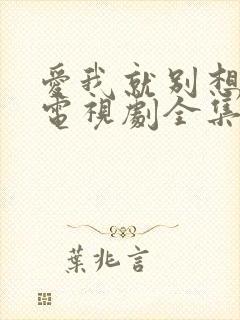 愛我就別想
電視劇全集
葉兆言